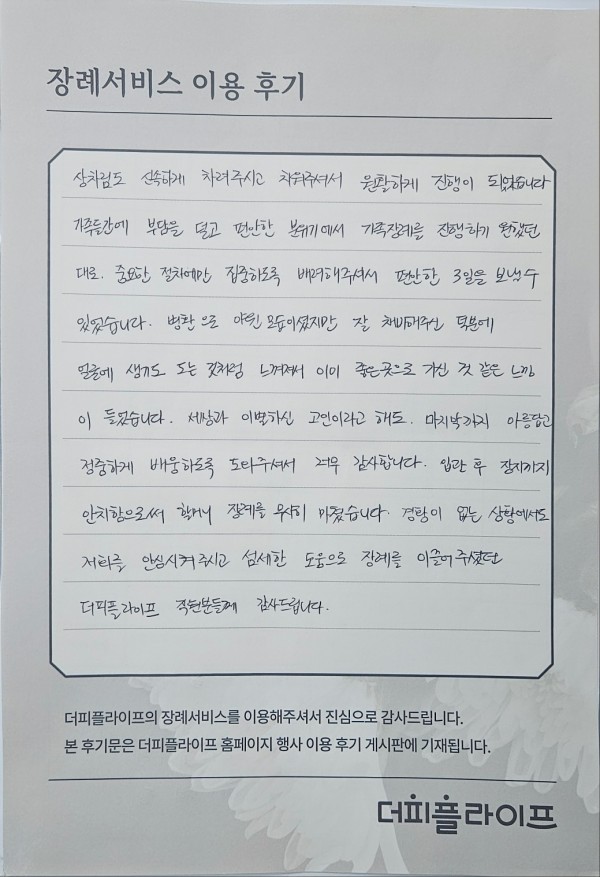 장례서비스 이용 후기
상차림도 신속하게 차려주시고 채워주셔서 원활하게 진행이 되었습니다
가족들간에 부담을 덜고 편안한 분위기에서 가족장례를 진행하기 원했던
대로. 중요한 절차에만 집중하도록 배려해주셔서 편안한 3일을 보낼 수
있었습니다. 병환으로 야윈 모습이셨지만 잘 채비해주신 덕분에
얼굴에 생기도 도는 것처럼 느껴져서 이미 좋은곳으로 가신 것 같은 느낌
이 들었습니다. 세상과 이별하신 고인이라고 해도. 마지막까지 아름답고
정중하게 배웅하도록 도와주셔서 매우 감사합니다. 입관 후 장지까지
안치함으로써 할머니 장례를 무사히 마쳤습니다. 경황이 없는 상황에서도
저희를 안심시켜주시고 섬세한 도움으로 장례를 이끌어주셨던
더피플라이프 직원분들께 감사드립니다.
더피플라이프의 장례서비스를 이용해주셔서 진심으로 감사드립니다.
본 후기문은 더피플라이프 홈페이지 행사 이용 후기 게시판에 기재됩니다.
더피플라이프